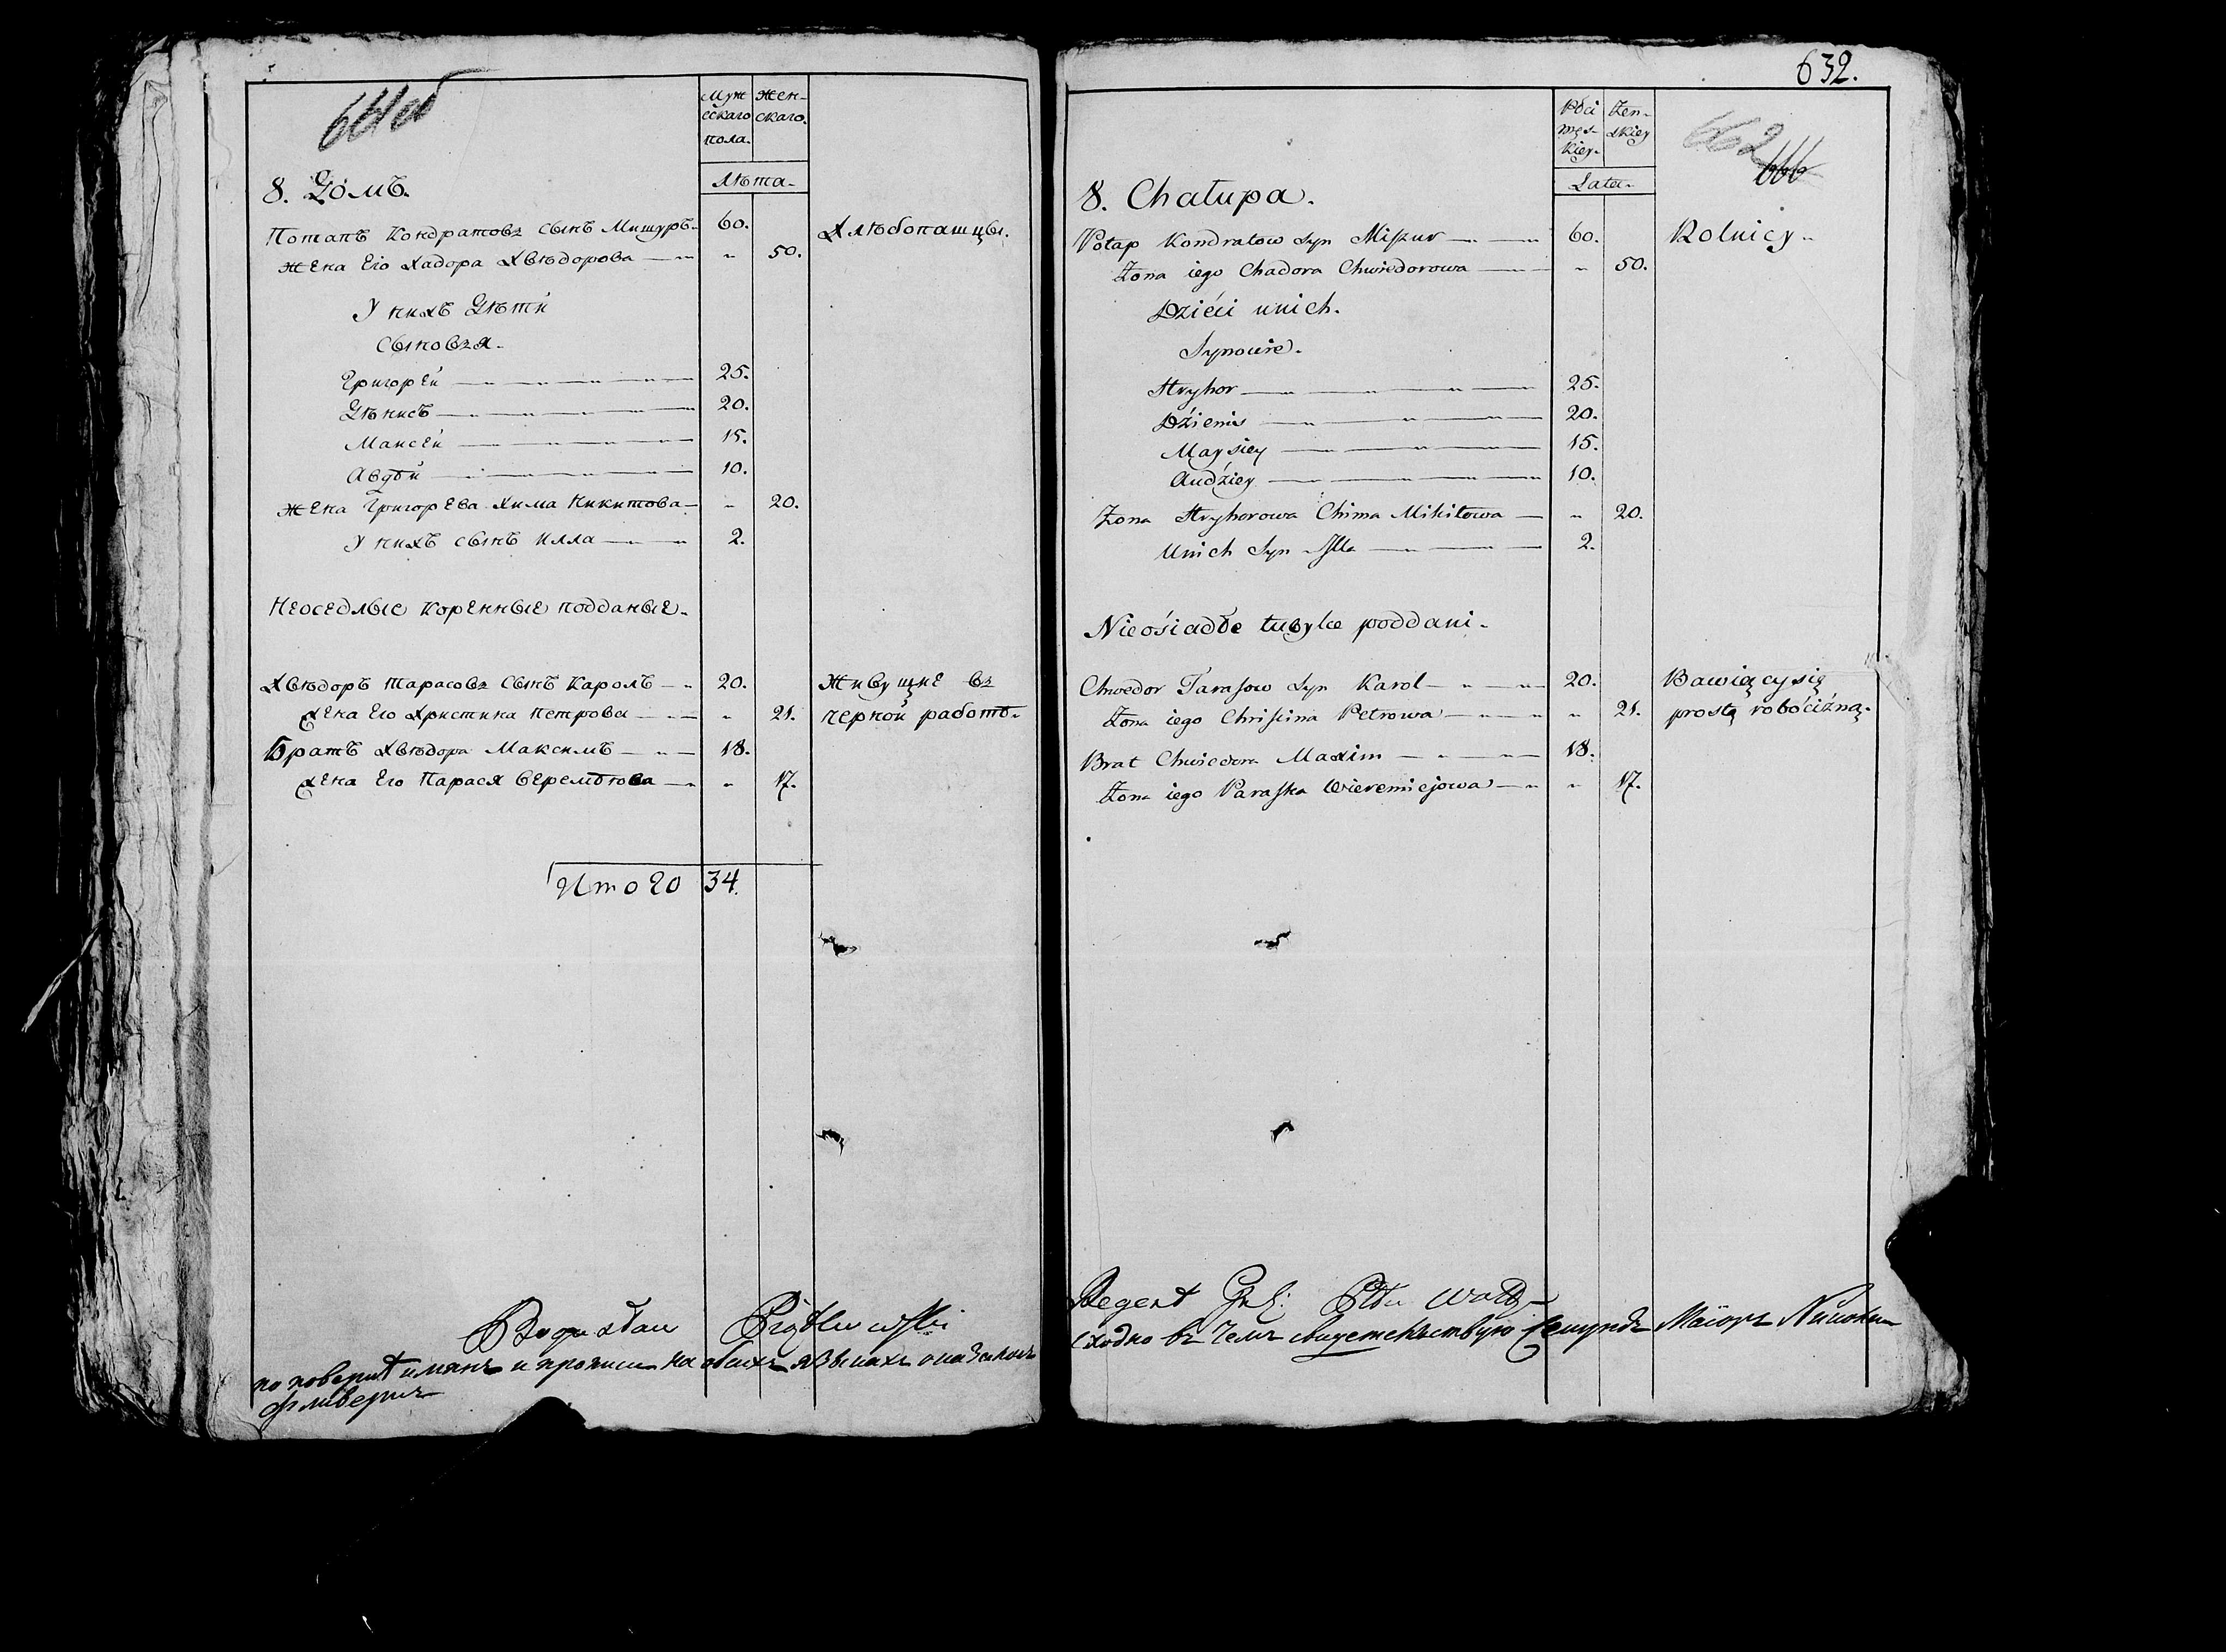 Муж
ескаго
пола.
Жен-
скаго.
Лѣта.
8. Домъ.
Потапъ Кондратовъ сынъ Мишуръ 60. Хлѣбопашцы.
Жена Его Хадора Хвѣдорова „ 50.
У нихъ Дѣти
Сыновъя.
Григорѣй 25.
Дѣнисъ 20.
Мансѣй 15.
Авдѣй 10.
Жена Григорѣва Хима Никитова „ 20.
У нихъ сынъ Илла 2.
Неоседлые Коренные подданые.
Хвѣдоръ Тарасовъ Сынъ Кароль 20. Живущие въ
Жена Его Христина Петрова „ 21. черной работѣ.
Братъ Хвѣдора Максимъ 18.
Жена Его Парася Веремѣюва „ 17.
Итого 34.
по повѣри имянъ и прописи на обеихъ языкахъ
632.
662
666
Płci
męs-
kiey.
Żen-
skiey
Lata.
8. Chałupa.
Potap Kondratow Syn Miszur 60. Rolnicy.
Żona iego Chadora Chwiedorowa „ 50.
Dzieci unich.
Synowie.
Hryhor 25.
Dźienis 20.
Maysiey 15.
Audziey 10.
Żona Hryhorowa Chima Mikitowa „ 20.
Unich Syn Illa 2.
Nieośiadłe tubylce poddani.
Chwedor Tarasow Syn Karol 20. Bawiącysię
Żona iego Christina Petrowa „ 21. prostą robocizną.
Brat Chwiedora Maxim 18.
Żona iego Paraska Wieremiejowa „ 17.
Regent
сходно въ чемъ свидетельствую Секундъ Маіоръ